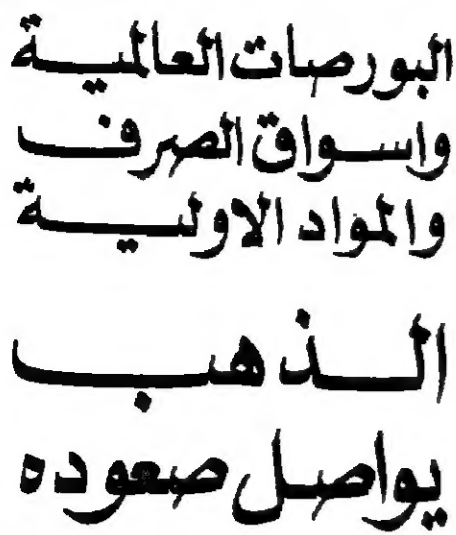 البورصات العالمية
واسواق الصرف
والمواد الاولية
الذهب
يواصل صعوده